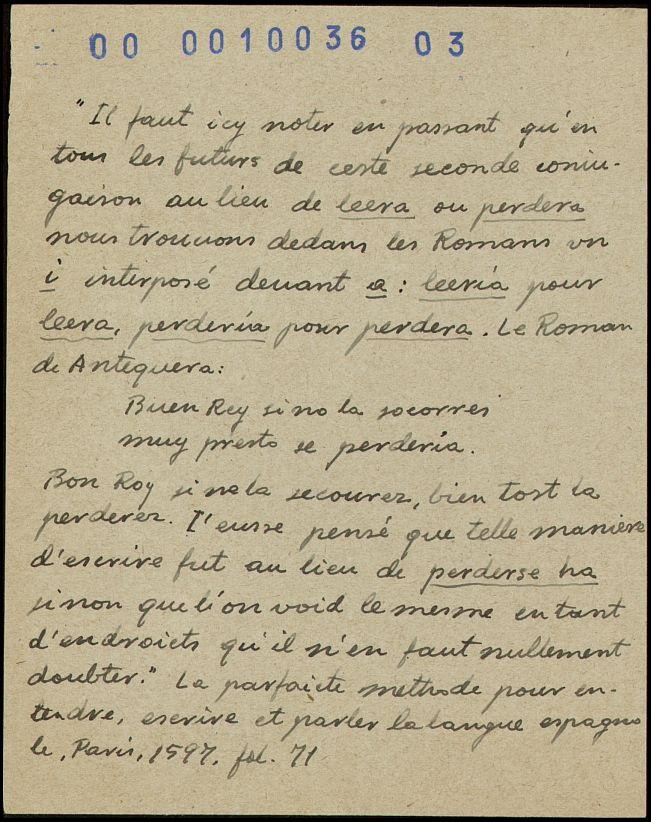 00 0010036 03
"Il faut icy noter en passant qu'en
tous les futurs de ceste seconde coniu-
gaison au lieu de leera ou perdera
nous trouuons dedans les Romans vn
i interposé deuant a: leería pour
leera, perdería pour perdera. Le Roman
de Antequera:
Buen Rey si no la socorres
muy presto se perdería.
Bon Roy si ne la secourez, bien tost la
perderez. I'eusse pensé que telle maniere
d'escrire fut au lieu de perderse ha
sinon que l'on void le mesme en tant
d'endroicts qu'il n'en faut nullement
doubter." La parfaicte methode pour en-
tendre, escrire et parler la langue espagno
le, Paris, 1597, fol. 71